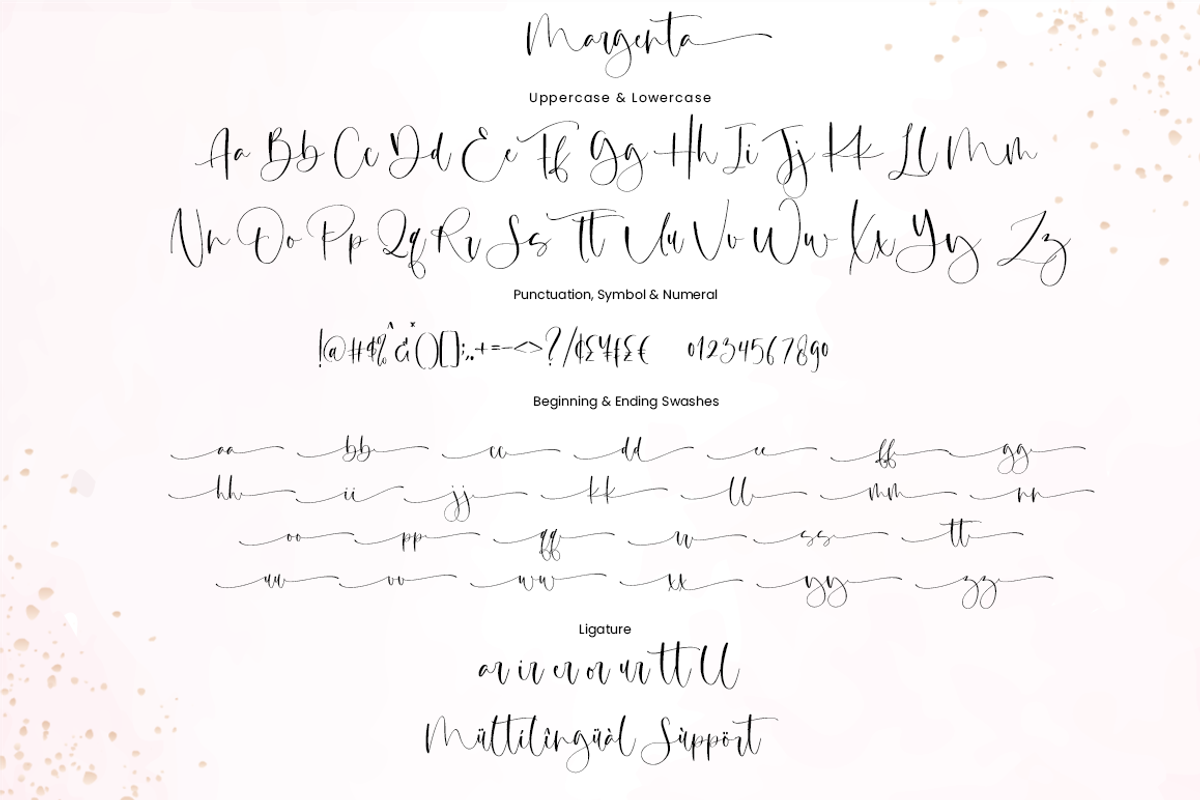 Margenta
Uppercase & Lowercase
Aa Bb Cc Dd Ee Ff Gg Hh Ii Jj Kk Ll Mm
Nn Oo Pp Qq Rr Ss Tt Uu Vv Ww Xx Yy Zz
Punctuation, Symbol & Numeral
01234567890
Beginning & Ending Swashes
aa bb cc dd ee ff gg
hh ii jj kk ll mm nn
oo pp qq rr ss tt
uu vv ww xx yy zz
Ligature
ar ir er or ur tt ll
Mültilîngüàl Süppört